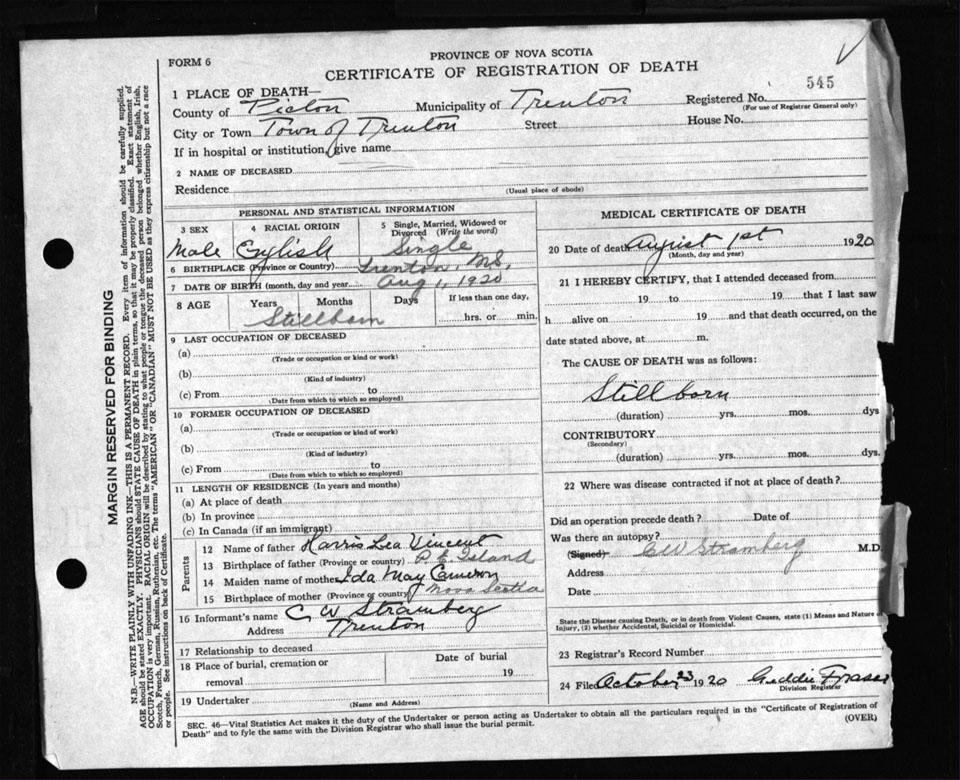 FORM 6
PROVINCE OF NOVA SCOTIA
CERTIFICATE OF REGISTRATION OF DEATH
545
1 PLACE OF DEATH—
County of Pictou Municipality of Trenton Registered No.
(For use of Registrar General only)
City or Town Town of Trenton Street House No.
If in hospital or institution, give name
2 NAME OF DECEASED
Residence
(Usual place of abode)
PERSONAL AND STATISTICAL INFORMATION
3 SEX 4 RACIAL ORIGIN 5 Single, Married, Widowed or
Divorced (Write the word)
Male English Single
6 BIRTHPLACE (Province or Country) Trenton, N.S.
7 DATE OF BIRTH (month, day and year) Aug 1, 1920
8 AGE Years Months Days If less than one day,
Stillborn hrs. or min.
9 LAST OCCUPATION OF DECEASED
(a)
(Trade or occupation or kind or work)
(b)
(Kind of industry)
(c) From to
(Date from which to which so employed)
10 FORMER OCCUPATION OF DECEASED
(a)
(Trade or occupation or kind of work)
(b)
(Kind of industry)
(c) From to
(Date from which to which so employed)
11 LENGTH OF RESIDENCE (In years and months)
(a) At place of death
(b) In province
(c) In Canada (if an immigrant)
Parents
12 Name of father Harris Lea Vincent
13 Birthplace of father (Province or country) P. E. Island
14 Maiden name of mother Ida May Cameron
15 Birthplace of mother (Province or country) Nova Scotia
16 Informant's name C W Stramberg
Address Trenton
17 Relationship to deceased
18 Place of burial, cremation or Date of burial
removal 19
19 Undertaker
(Name and Address)
MEDICAL CERTIFICATE OF DEATH
20 Date of death August 1st 1920
(Month, day and year)
21 I HEREBY CERTIFY, that I attended deceased from
19 to 19 that I last saw
h alive on 19 and that death occurred, on the
date stated above, at m.
The CAUSE OF DEATH was as follows:
Stillborn
(duration) yrs. mos. dys
CONTRIBUTORY
(Secondary)
(duration) yrs. mos. dys.
22 Where was disease contracted if not at place of death?
Did an operation precede death? Date of
Was there an autopsy?
(Signed) C W Stramberg M.D.
Address
Date
State the Disease causing Death, or in death from Violent Causes, state (1) Means and Nature of
Injury, (2) whether Accidental, Suicidal or Homicidal.
23 Registrar's Record Number
24 Filed October 23 1920 Geddie Fraser
Division Registrar
SEC. 46—Vital Statistics Act makes it the duty of the Undertaker or person acting as Undertaker to obtain all the particulars required in the "Certificate of Registration of
Death" and to fyle the same with the Division Registrar who shall issue the burial permit.
(OVER)
MARGIN RESERVED FOR BINDING
N.B.—WRITE PLAINLY WITH UNFADING INK—THIS IS A PERMANENT RECORD. Every item of information should be carefully supplied.
AGE should be stated EXACTLY. PHYSICIANS should STATE CAUSE OF DEATH in plain terms, so that it may be properly classified. Exact statement of
OCCUPATION is very important. RACIAL ORIGIN will be described by stating to what people or tongue the deceased person belonged whether English, Irish,
Scotch, French, German, Russian, Ruthenian, etc. The terms "AMERICAN" OR "CANADIAN" MUST NOT BE USED as they express citizenship but not a race
or people. See instructions on back of Certificate.